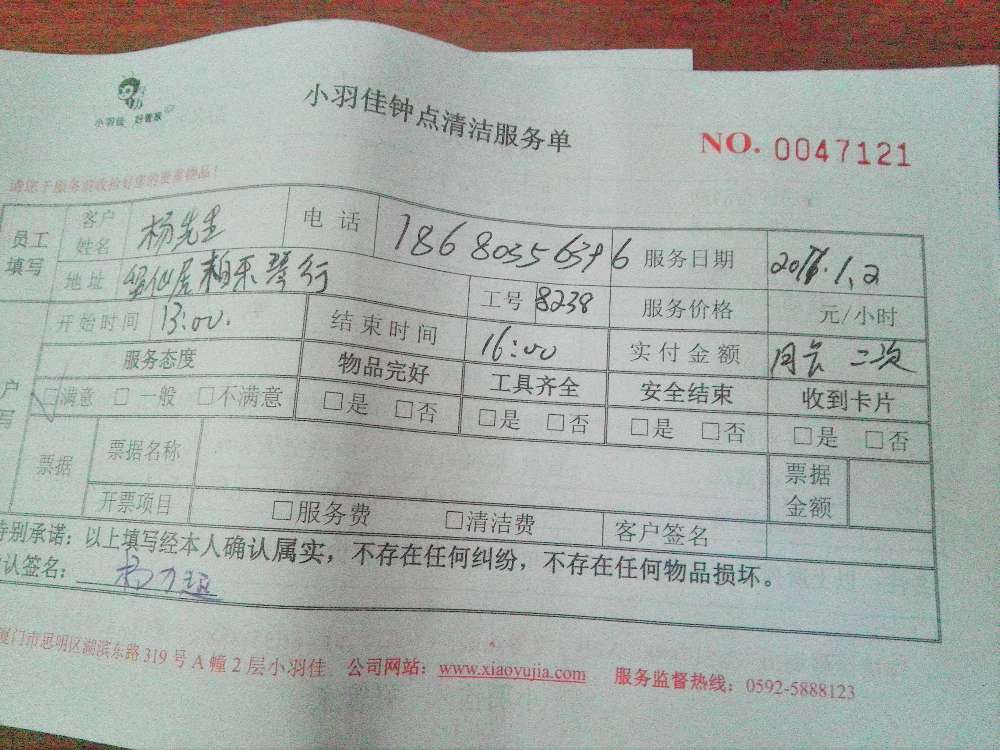 小羽佳 好管家
小羽佳钟点清洁服务单
NO. 0047121
请您于服务前收捡好您的贵重物品!
员工填写 客户姓名 杨先生 电话 18680355696 服务日期 2016.1.2
地址 柏乐琴行 工号 8238 服务价格 元/小时
开始时间 13:00. 结束时间 16:00 实付金额 二次
服务态度 物品完好 工具齐全 安全结束 收到卡片
□满意 □一般 □不满意 □是 □否 □是 □否 □是 □否 □是 □否
票据 票据名称 票据金额
开票项目 □服务费 □清洁费 客户签名
别承诺:以上填写经本人确认属实,不存在任何纠纷,不存在任何物品损坏。
认签名:
厦门市思明区湖滨东路319号A幢2层小羽佳 公司网站:www.xiaoyujia.com 服务监督热线:0592-5888123